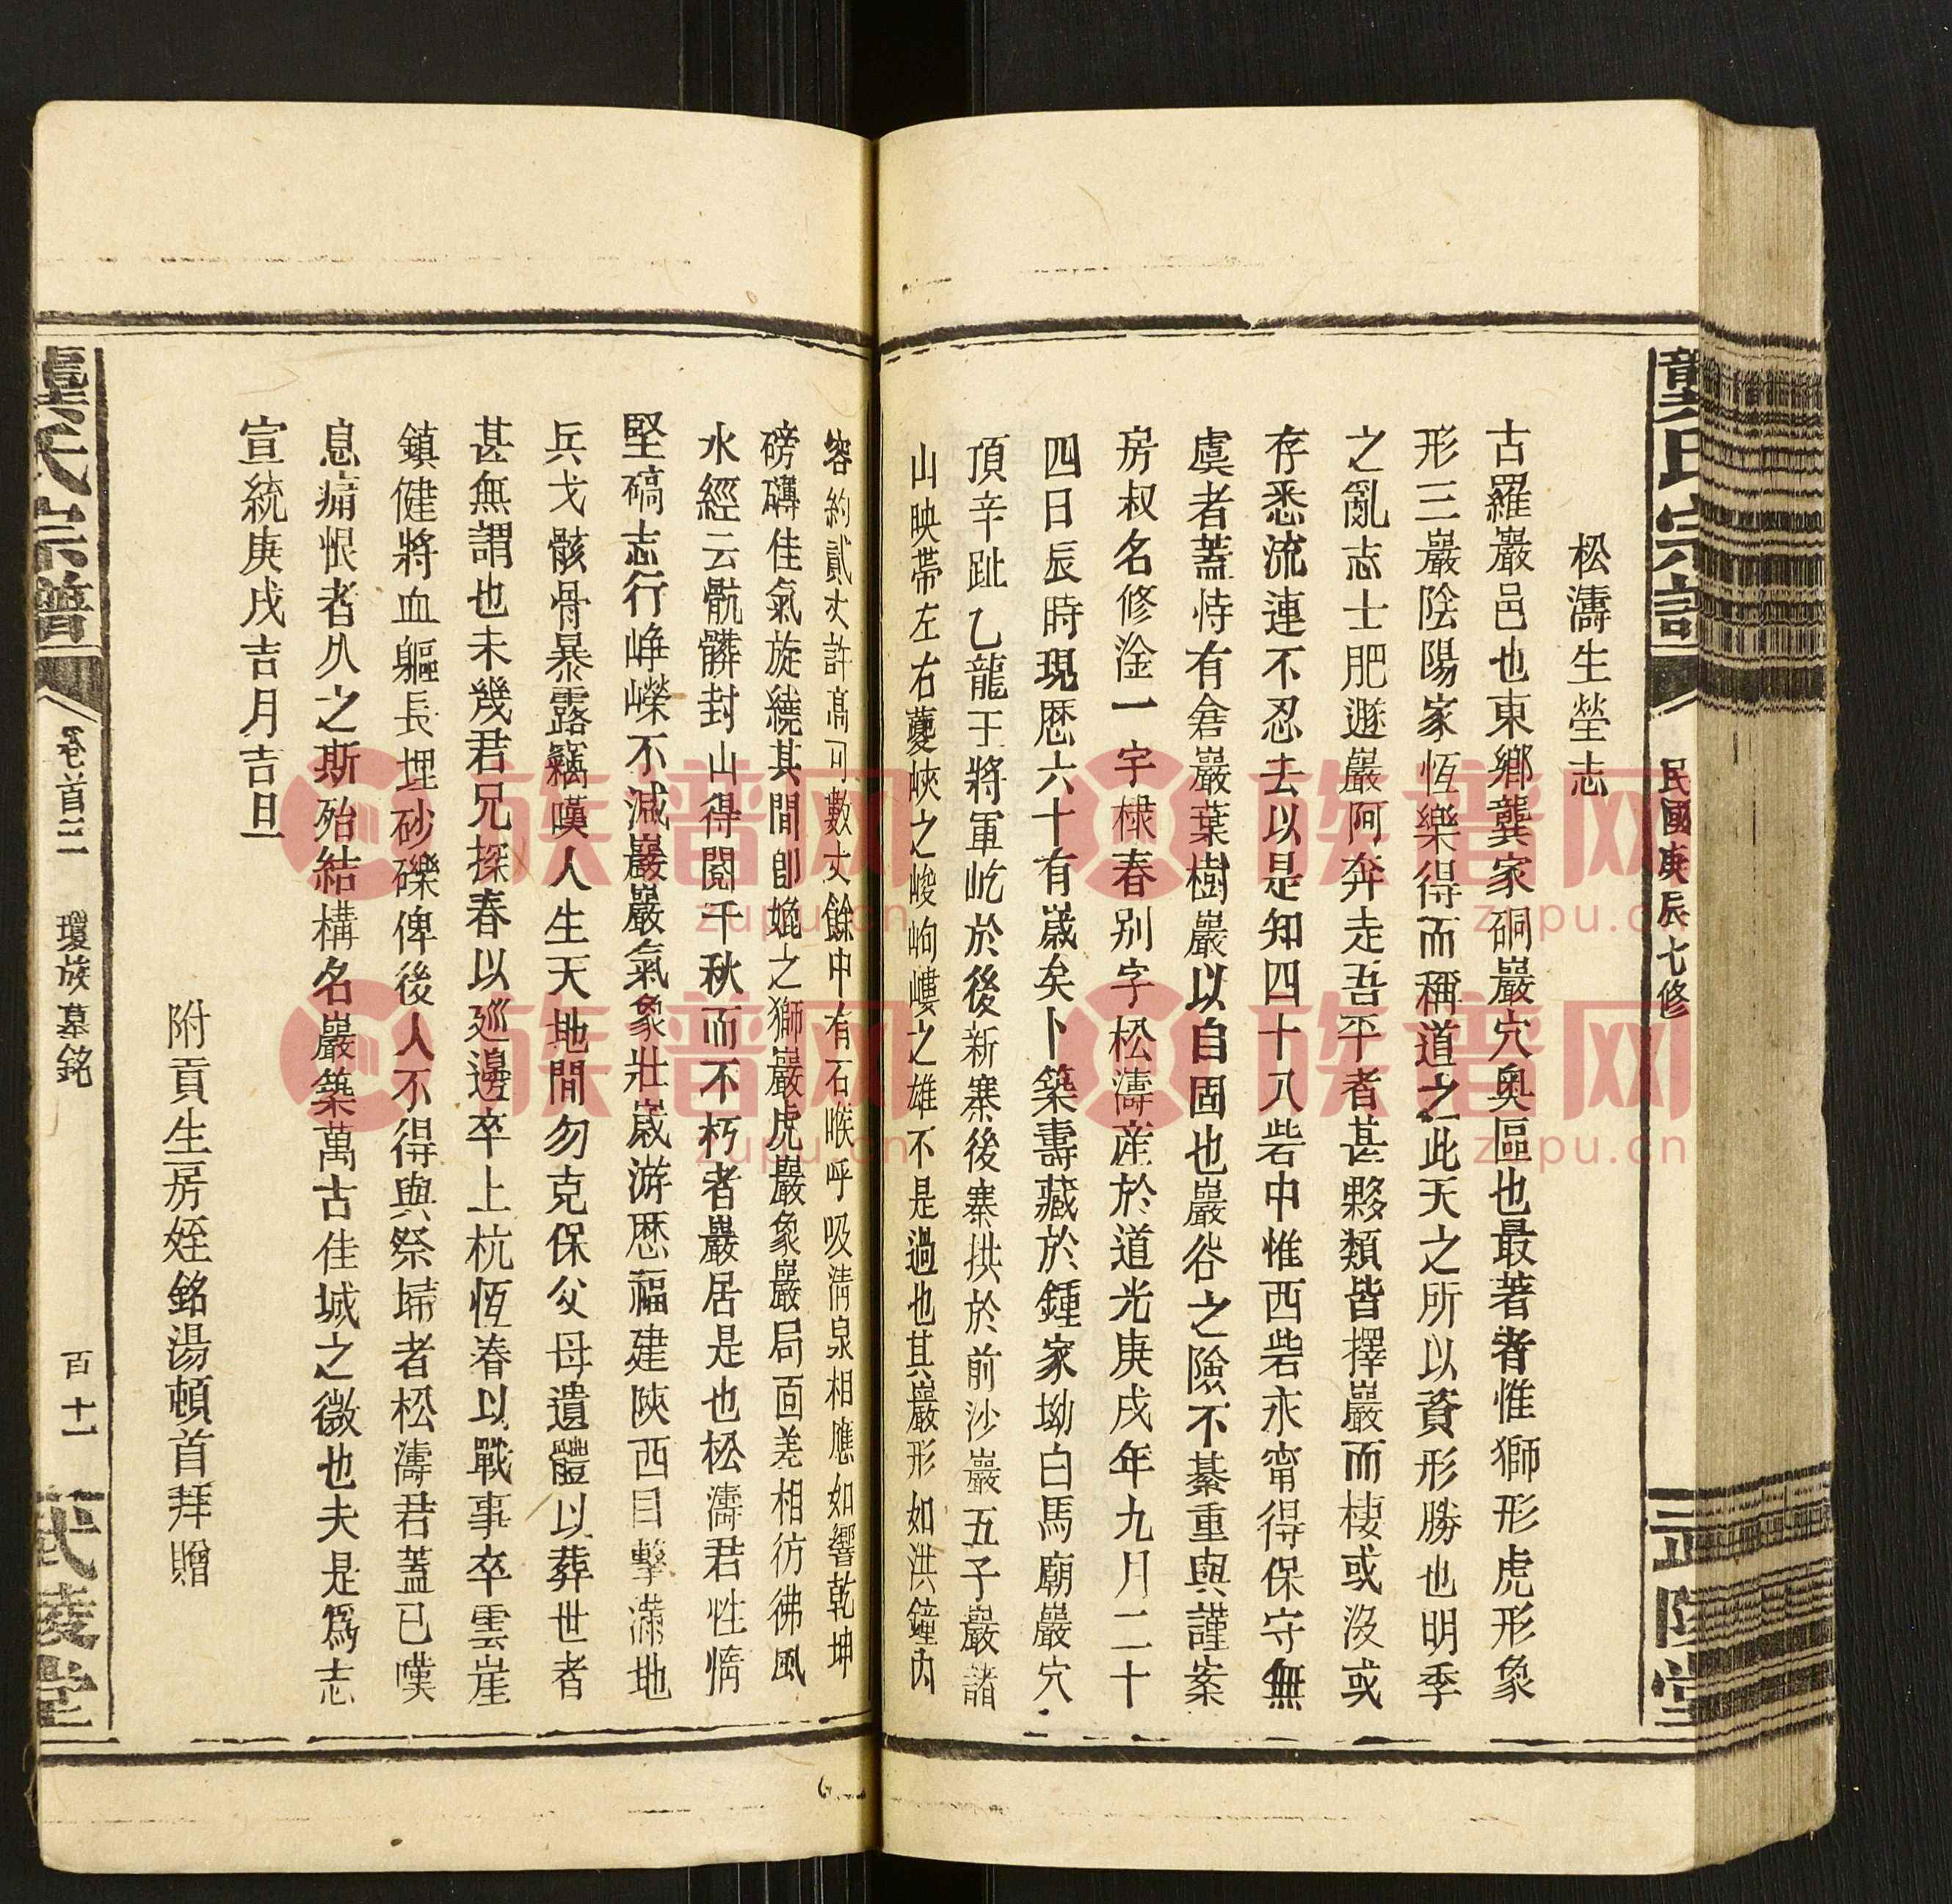 龔氏宗譜
民國庚辰七修
武陵堂
松濤生塋志
古羅巖邑也東鄉龔家硐巖穴奥區也最著者惟獅形虎形象
形三巖陰陽家恆樂得而稱道之此天之所以資形勝也明季
之亂志士肥遯巖阿奔走吾平者甚夥類皆擇巖而棲或沒或
存悉流連不忍去以是知四十八砦中惟西砦永甯得保守無
虞者蓋恃有倉巖葉樹巖以自固也巖谷之險不綦重與謹案
房叔名修淦一字棣春别字松濤産於道光庚戌年九月二十
四日辰時現歴六十有歲矣卜築壽藏於鍾家坳白馬廟巖穴
頂辛趾乙龍王將軍屹於後新寨後寨拱於前沙巖五子巖諸
山映帶左右夔峽之峻岣嶁之雄不是過也其巖形如洪鐘内
容約貳丈許高可數丈餘中有石喉呼吸淸泉相應如響乾坤
磅礴佳氣旋繞其間卽媲之獅巖虎巖象巖局面差相彷彿風
水經云骯髒封山得閱千秋而不朽者巖居是也松濤君性情
堅碻志行崢嶸不減巖巖氣象壯歲游歴福建陝西目擊滿地
兵戈骸骨暴露竊嘆人生天地間勿克保父母遺體以葬世者
甚無謂也未幾君兄探春以廵邊卒上杭恆春以戰事卒雲崖
鎮健將血軀長埋砂礫俾後人不得與祭埽者松濤君蓋已嘆
息痛恨者久之斯殆結構名巖築萬古佳城之微也夫是爲志
宣統庚戌吉月吉旦
附貢生房姪銘湯頓首拜贈
龔氏宗譜
卷首三
瓊族墓銘
百十一
武陵堂
族谱网
zupu.cn
族谱网
zupu.cn
族谱网
zupu.cn
族谱网
zupu.cn